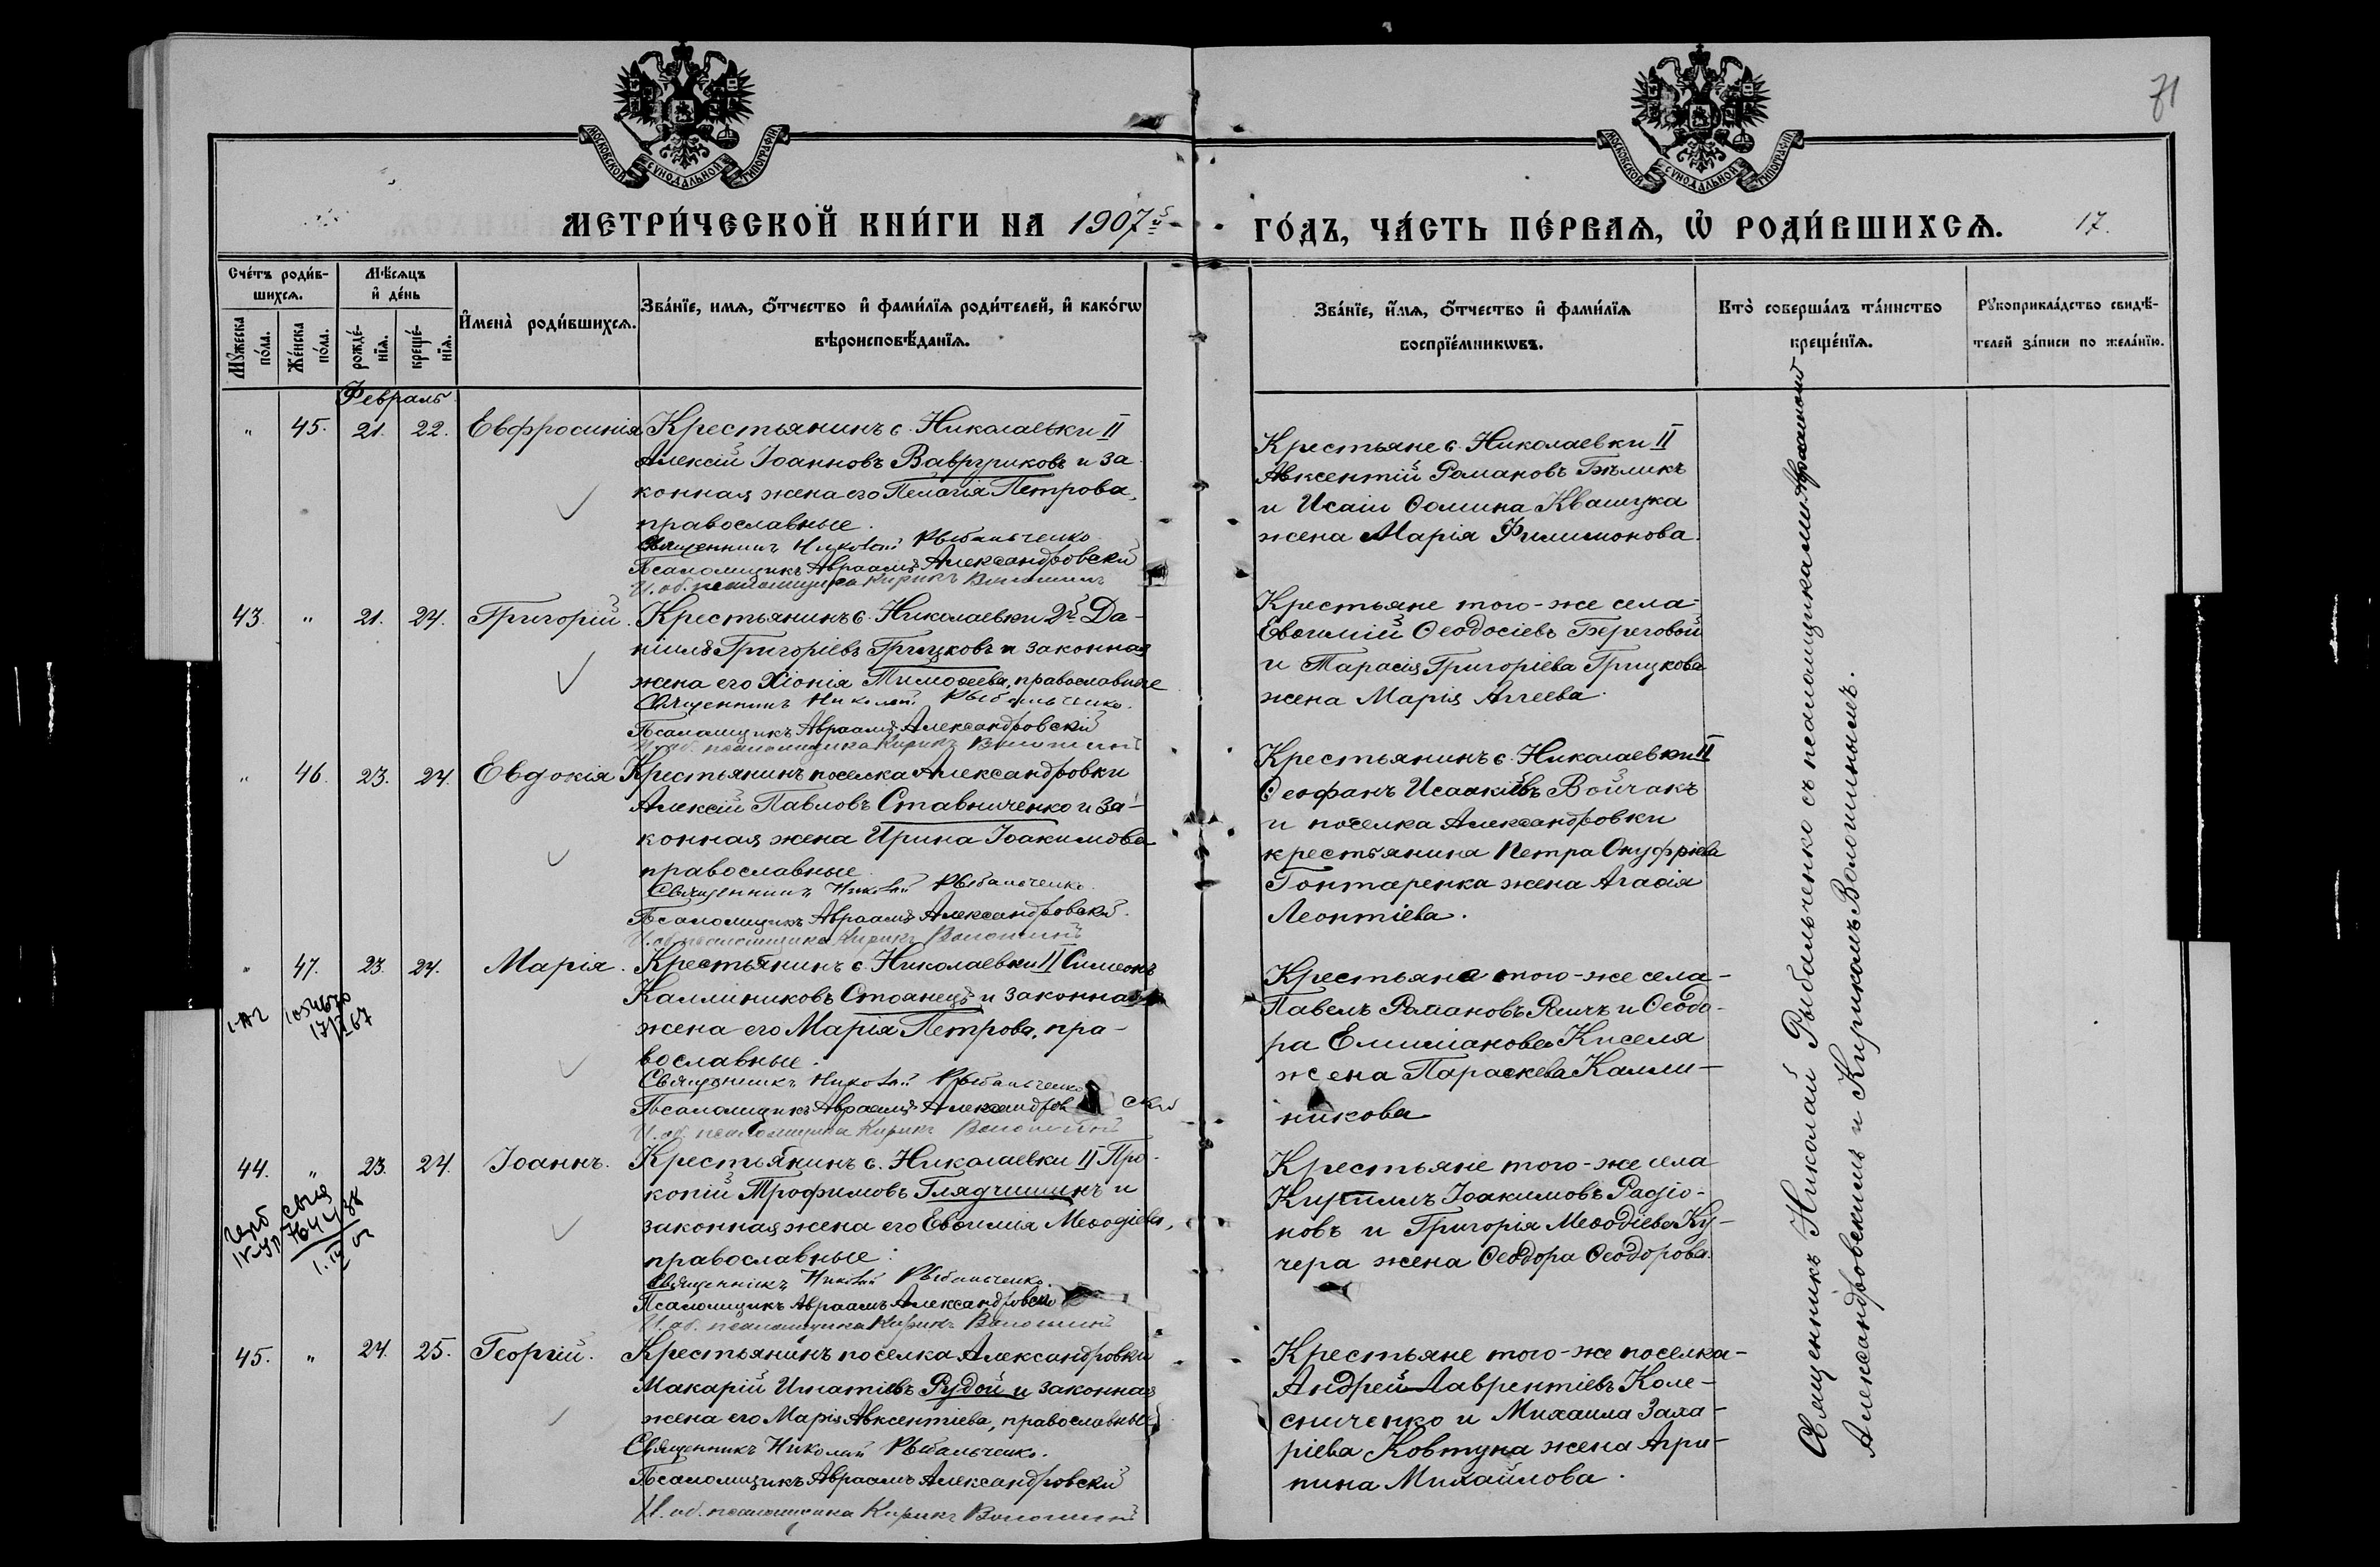 71
МОСКОВСКОЙ СѴНОДАЛЬНОЙ ТИПОГРАФІИ
МОСКОВСКОЙ СѴНОДАЛЬНОЙ ТИПОГРАФІИ
МЕТРИ́ЧЕСКОЙ КНИ́ГИ НА 1907й
ГО́ДЪ, ЧА́СТЬ ПЕ́РВАѦ, Ѡ҆ РОДИ́ВШИХСѦ. 17.
Сче́тъ роди́в-
шихсѧ.
Мѣ́сѧцъ
и҆ де́нь
Мꙋ́жеска
по́ла.
Же́нска
по́ла.
рожде́-
нїѧ.
креще́-
нїѧ.
И҆мена̀ роди́вшихсѧ.
Зва́нїе, имѧ, ѻ҆́тчество и҆ фами́лїѧ роди́телей, и҆ како́гѡ
вѣроисповѣ́данїѧ.
Зва́нїе, и҆́мѧ, ѻ҆́тчество и҆ фами́лїѧ
воспрїе́мникѡвъ.
Кто̀ соверша́лъ та́инство
креще́нїѧ.
Рꙋкоприкла́дство свидѣ́-
телей за́писи по жела́нїю.
Февраль
" 45. 21. 22. Евфросинія
Крестьянинъ с. Николаевки II
Алексій Іоанновъ и за
конная жена его Пелагія Петрова,
православные.
Священникъ Николай Рыбальченко
Псаломщикъ Авраамъ Александровскій
И. об. псаломщика Кирикъ Волошинъ
Крестьяне с. Николаевки II
Авксентій Романовъ Бѣликъ
и Исаіи Ѳомина Квашука
жена Марія Филимонова.
43. " 21. 24. Григорій.
Крестьянинъ с. Николаевки 2й Да-
ніилъ Григоріевъ Грицковъ и законная
жена его Хіонія Тимоѳеева, православные
Священникъ Николай Рыбальченко.
Псаломщикъ Авраамъ Александровскій
И. об. псаломщика Кирикъ Волошинъ
Крестьяне того-же села-
Евѳимій Ѳеодосіевъ Береговой
и Тарасія Григоріева Грицкова
жена Марія Аггеева.
" 46. 23. 24. Евдокія
Крестьянинъ поселка Александровки
Алексій Павловъ Ставниченко и за-
конная жена Ирина Іоакимова
православные
Священникъ Николай Рыбальченко.
Псаломщикъ Авраамъ Александровскій.
И. об. псаломщика Кирикъ Волошинъ
Крестьянинъ с. Николаевки II
Ѳеофанъ Исаакіевъ Войчакъ
и поселка Александровки
крестьянина Петра Онуфріева
Гонтаренка жена Агаѳія
Леонтіева.
" 47. 23. 24. Марія.
Крестьянинъ с. Николаевки II Симеонъ
Каллиниковъ Стоанецъ и законная
жена его Марія Петрова, пра-
вославные.
Священникъ Николай Рыбальченко
Псаломщикъ Авраамъ Александровскій
И. об. псаломщика Кирикъ Волошинъ
Крестьяне того-же села-
Павелъ Романовъ и Ѳеодо-
ра Емиліанова Киселя
жена Параскева Калли-
никова
44. " 23. 24. Іоаннъ.
Крестьянинъ с. Николаевки II Про-
копій Трофимовъ и
законная жена его Евѳимія Меѳодіева,
православные:
Священникъ Николай Рыбальченко.
Псаломщикъ Авраамъ Александровскій
И. об. псаломщика Кирикъ Волошинъ
Крестьяне того-же села
Кириллъ Іоакимовъ Радіо-
новъ и Григорія Меѳодіева Ку-
чера жена Ѳеодора Ѳеодорова.
45. " 24. 25. Георгій.
Крестьянинъ поселка Александровки
Макарій Игнатіевъ Рудой и законная
жена его Марія Авксентіева, православные
Священникъ Николай Рыбальченко.
Псаломщикъ Авраамъ Александровскій
И. об. псаломщика Кирикъ Волошинъ
Крестьяне того-же поселка-
Андрей Лаврентіевъ Коле-
сниченко и Михаила Заха-
ріева Ковтуна жена Агри-
пина Михайлова.
Священникъ Николай Рыбальченко съ псаломщиками Авраамомъ
Александровскимъ и Кирикомъ Волошинымъ.